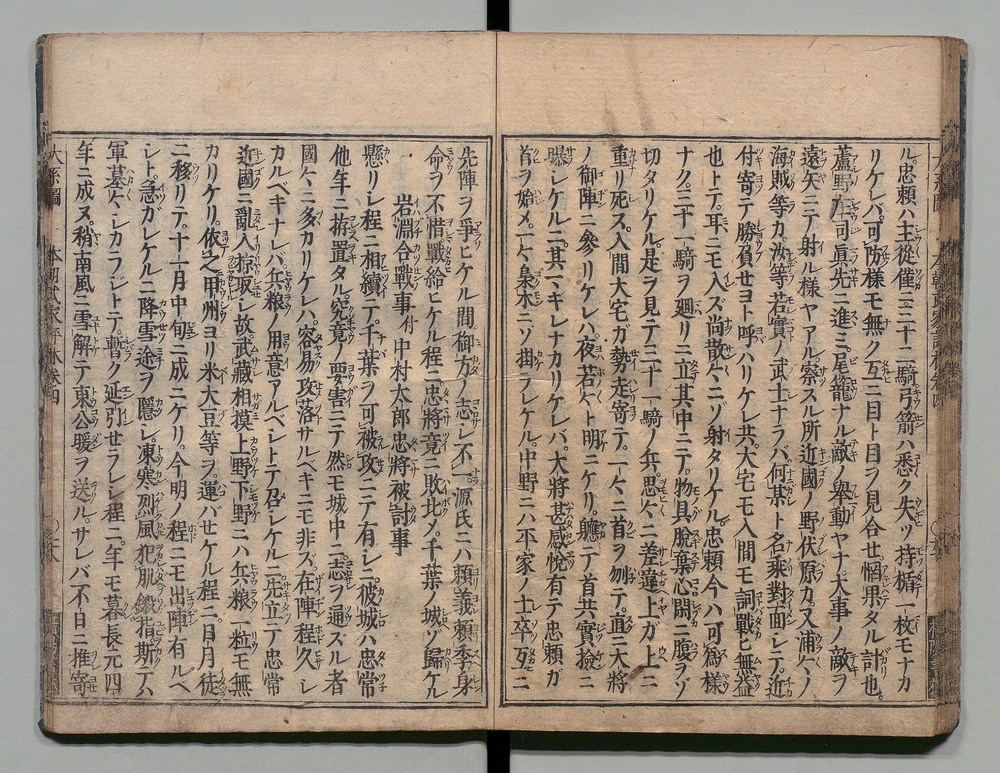 ル。忠頼ハ主從僅ニ三十二騎弓箭ハ悉ク失ツ持楯一枚モナカ
リケレバ。可防樣モ無ク互ニ目ト目ヲ見合セ。惘果タル計也。
蘆野庄司眞先ニ進ミ。尾籠ナル敵ノ舉動ヤナ。大事ノ敵ヲ
遠矢ニテ射ル樣ヤアル。察スル所近國ノ野伏原カ。又浦々ノ
海賊等カ。汝等若實ノ武士ナラバ。何某ト名乘對面シテ近
付寄テ勝負セヨト呼ハリケレ共。大宅モ入間モ詞戰ヒ無益
也トテ。耳ニモ入ズ尚散々ニゾ射タリケル。忠頼今ハ可爲樣
ナク。三十一騎ヲ廻リニ立其中ニテ。物具脫棄心閑ニ腹ヲゾ
切タリケル。是ヲ見テ三十一騎ノ兵。思々ニ差違上ガ上ニ
重リ死ス。入間大宅ガ勢走寄テ。一々ニ首ヲ刎テ。直ニ大將
ノ御陣ニ參リケレハ夜若々ト明ニケリ。軈テ首共實撿ニ
曝シケルニ。其マギレナカリケレバ。大將甚感悅有テ忠頼ガ
首ヲ始メ。一々梟木ニソ掛ラレケル。中野ニハ平家ノ士卒互ニ
先陣ヲ爭ヒケル間。御方ノ志シ不一。源氏ニハ頼義頼季身
命ヲ不惜戰給ヒケル程ニ忠將竟ニ敗北メ。千葉ノ城ゾ歸ケル
岩淵合戰事付中村太郎忠將被討事
懸リシ程ニ相續テ千葉ヲ可被攻ニテ有シニ。彼城ハ忠常
他年ニ拵置タル究竟ノ要害ニテ。然モ城中ニ志ヲ通ズル者
國々ニ多カリケレハ。容易攻落サルベキニモ非ズ。在陣程久シ
カルベキナレバ。兵粮ノ用意アルベシトテ召シケルニ。先立テ忠常
近國ニ亂入掠取シ故。武藏相摸上野下野ニハ兵粮一粒モ無
カリケリ。依之甲州ヨリ米大豆等ヲ運バセケル程ニ。日月徒
ニ移リテ。十一月中旬ニ成ニケリ。今明ノ程ニモ出陣有ルベ
シト。急ガレケルニ降雪途ヲ隱シ。凍寒烈風犯肌。鐵指斯テハ
軍墓々シカラジトテ。暫ク延引セラレシ程ニ。年モ暮長元四
年ニ成ヌ。稍南風ニ雪解テ東公暖ヲ送ル。サレバ不日ニ推寄